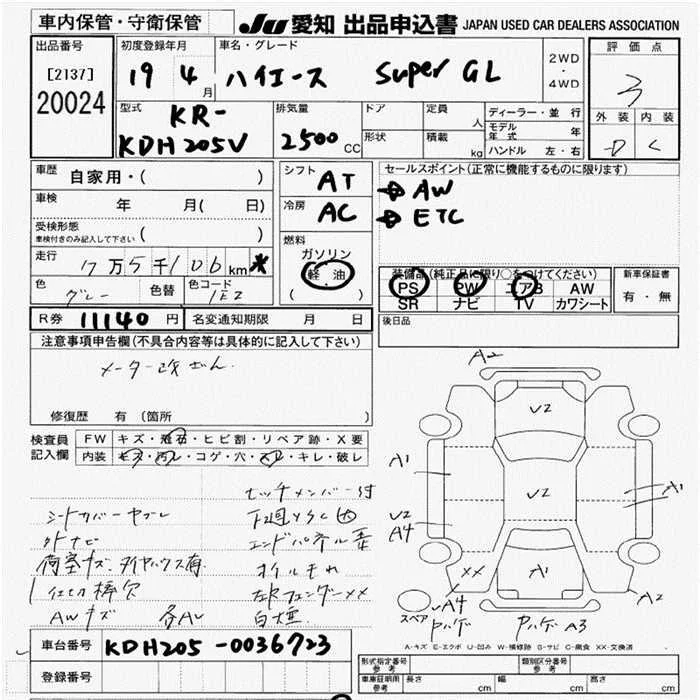 車内保管・守衛保管
JU 愛知 出品申込書 JAPAN USED CAR DEALERS ASSOCIATION
出品番号
[2137]
20024
初度登録年月
19 4月
車名・グレード
ハイエース Super GL
2WD
・
4WD
評価点
3
外装 内装
D C
型式
KR-
KDH205V
排気量
2500 CC
ドア
形状
定員 人
積載 kg
ディーラー・並行
モデル年式 年
ハンドル 左・右
車歴
自家用・( )
車検
年 月( 日)
受検形態
車検付きのみ記入して下さい ( )
走行
17万5千106km *
色
グレー
色替
色コード
1E7
シフト
AT
冷房
AC
燃料
ガソリン
軽油
( )
セールスポイント(正常に機能するものに限ります)
AW
ETC
装備品(純正品に限り○をつけてください)
PS PW エアB AW
SR ナビ TV カワシート
新車保証書
有・無
R券 11140円
名変通知期限 月 日
後日品
注意事項申告欄(不具合内容等は具体的に記入して下さい)
メーター改ざん
修復歴 有(箇所 )
検査員
記入欄
FW キズ・飛石・ヒビ割・リペア跡・X要
内装 キズ・汚レ・コゲ・穴・スレ・キレ・破レ
シートカバーヤブレ
外ナビ
荷室キズ、タイヤハウス有
AWキズ 各AU
下廻りSC
エンドパネル歪
オイルモレ
左Rフェンダーxx
A2
V2
A1
V2
A1
V2
A4
XX
A1
A2
スペア
A4
ヤハゲ
ヤハゲ A3
A-キズ E-エクボ U-凹み W-補修跡 S-サビ C-腐食 XX-交換済
車台番号
KDH205-0036723
登録番号
形式指定番号
参考
類別区分番号
参考
車庫証明用
参考
長さ cm
幅 cm
高さ cm